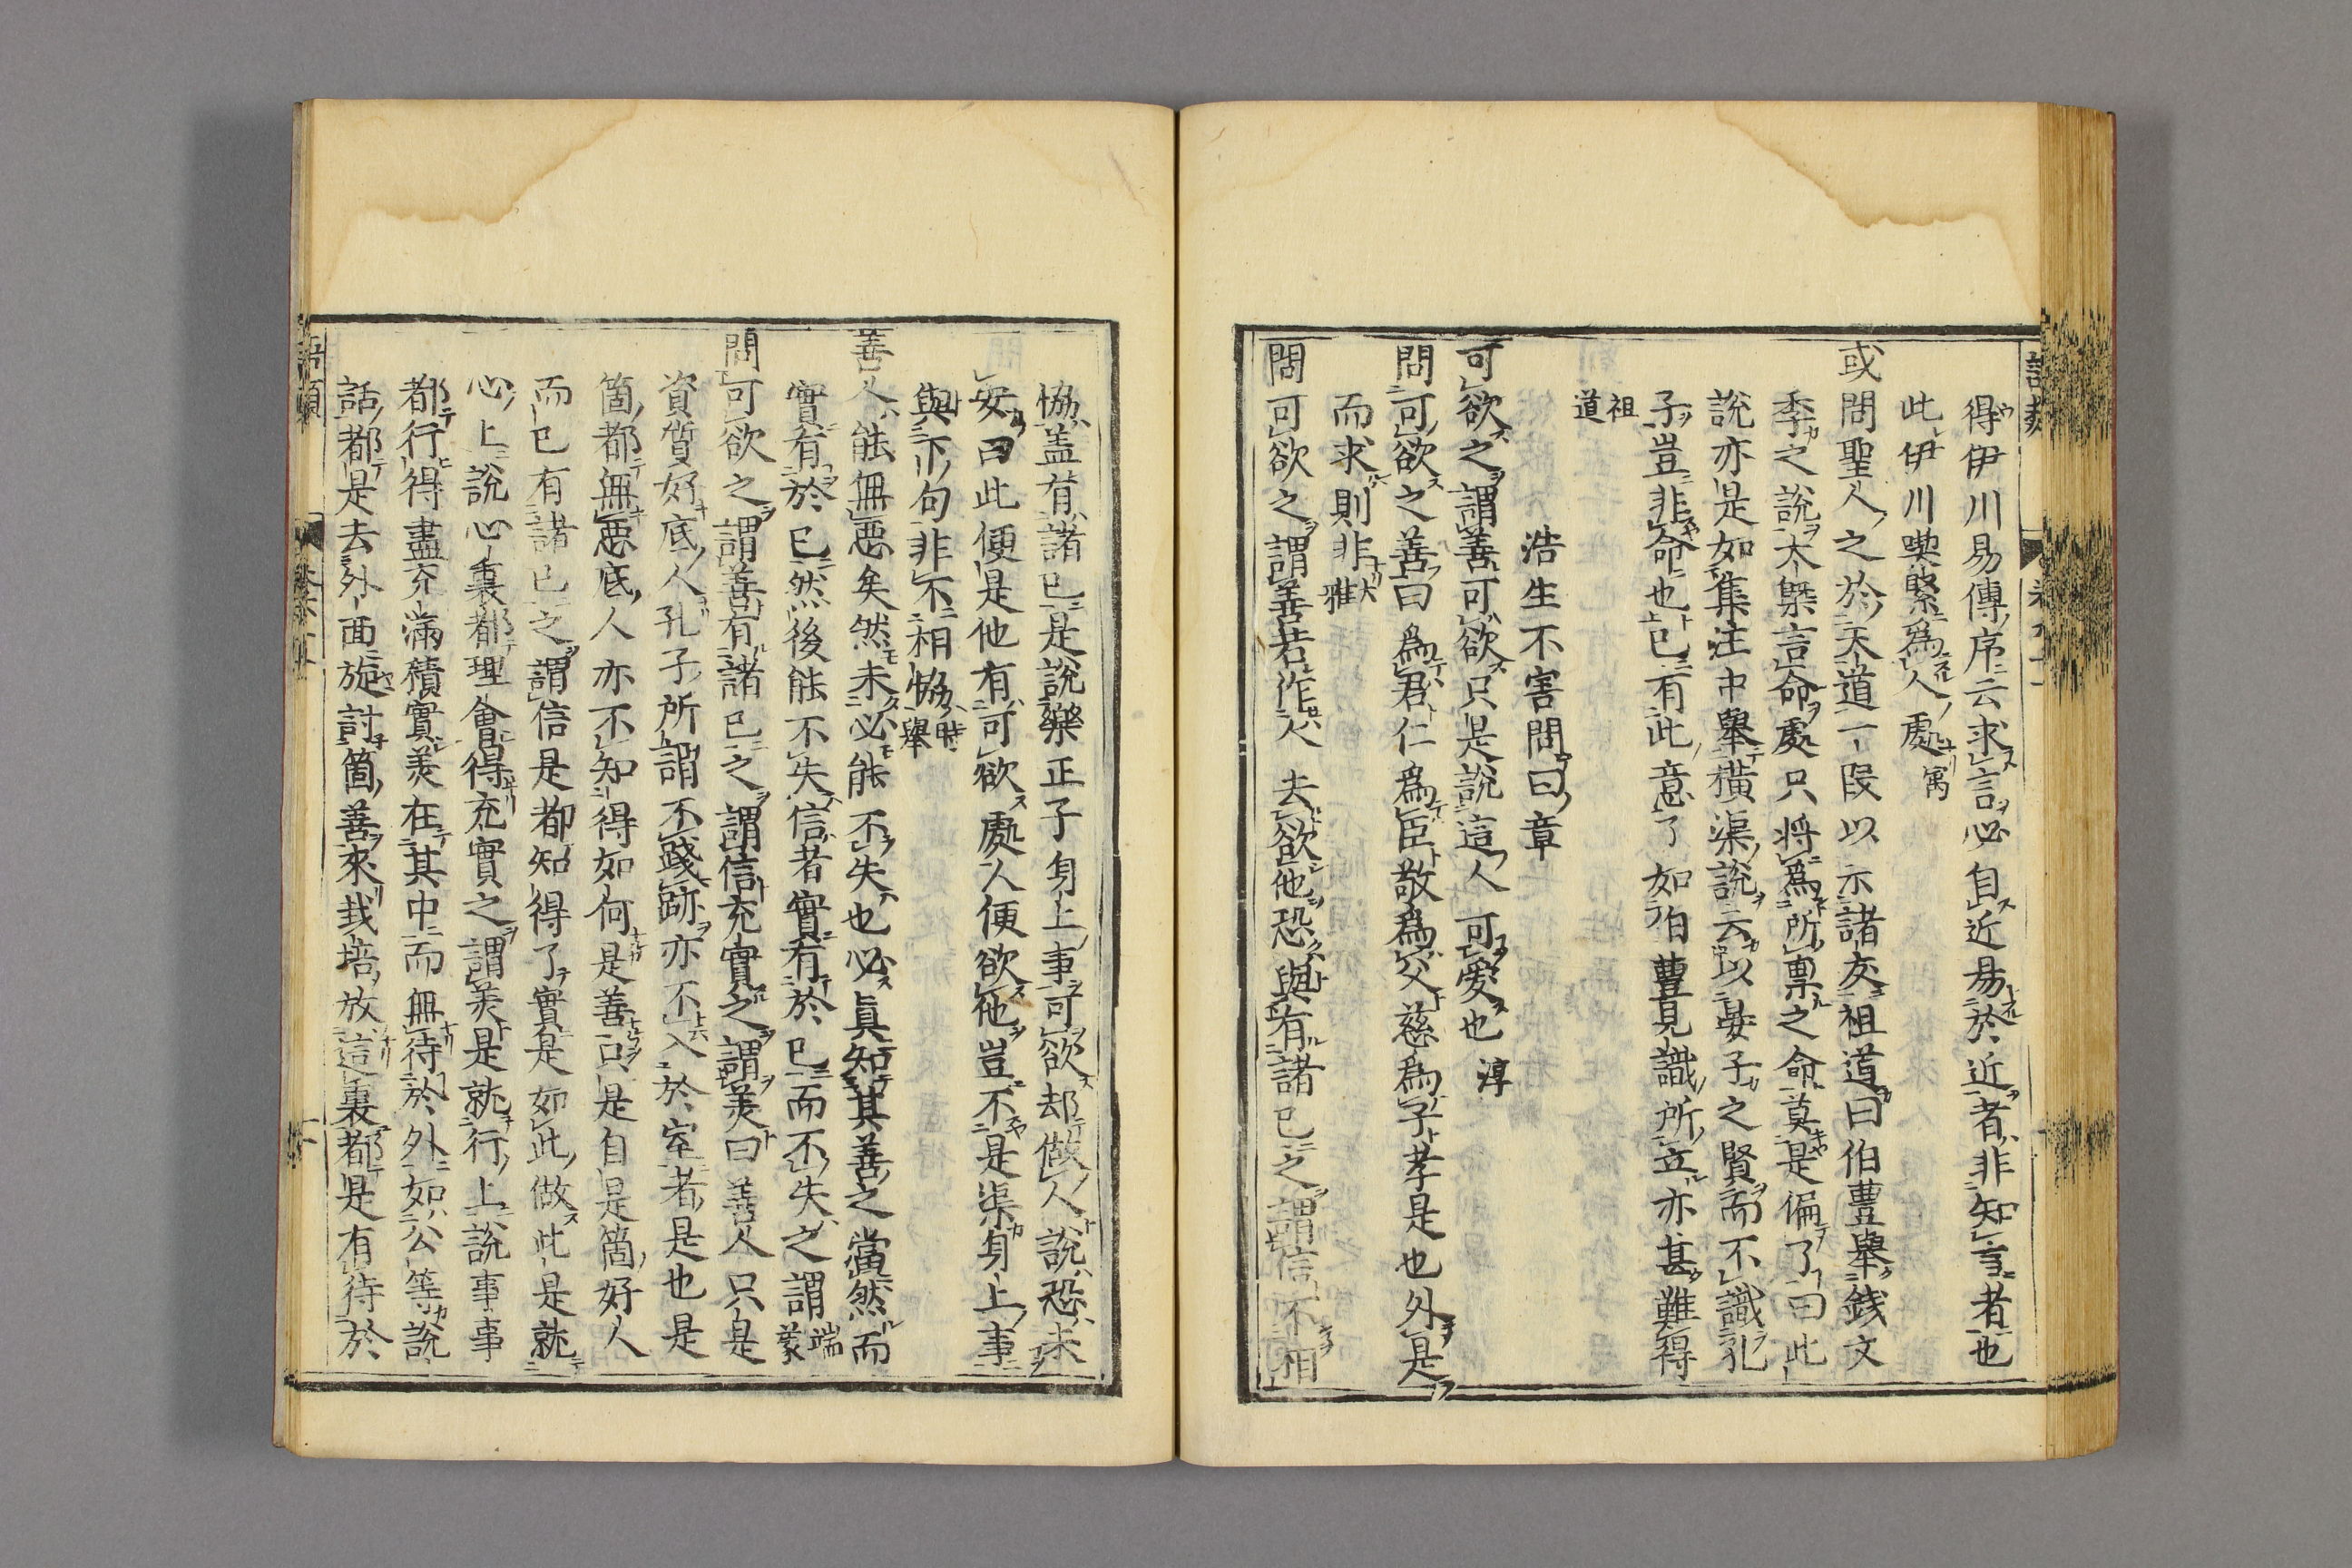 得伊川易傳序云求言必自近易於近者非知言者也
此伊川喫緊爲人處寓
或問聖人之於天道一段以示諸友祖道曰伯豊舉錢文
季之說大槩言命處只將爲所禀之命莫是偏了曰此
說亦是如集注中舉橫渠說云以晏子之賢而不識孔
子豈非命也已有此意了如伯豊見識所立亦甚難得
祖道
浩生不害問曰章
可欲之謂善可欲只是說這人可愛也淳
問可欲之善曰爲君仁爲臣敬爲父慈爲子孝是也外是
而求則非大雅
問可欲之謂善若作人去欲他恐與有諸已之謂信不相
協盖有諸已是說樂正子身上事可欲却做人說恐未
安曰此便是他有可欲處人便欲他豈不是渠身上事
與下句非不相協時舉
善人能無惡矣然未必能不失也必真知其善之當然而
實有於已然後能不失信者實有於已而不失之謂端蒙
問可欲之謂善有諸已之謂信充實之謂羙曰善人只是
資質好底人孔子所謂不踐跡亦不入於室者是也是
箇都無惡底人亦不知得如何是善只是自是箇好人
而已有諸已之謂信是都知得了實是如此做此是就
心上說心裏都理會得充實之謂羙是就行上說事事
都行得盡充滿積實羙在其中而無待於外如公等說
話都是去外面旋討箇善來栽培放這裏都是有待於
語類